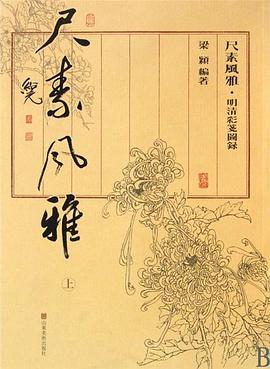 尺素風雅
上
尺素風雅·明清彩箋圖録
梁穎編著
山東美術出版社
B